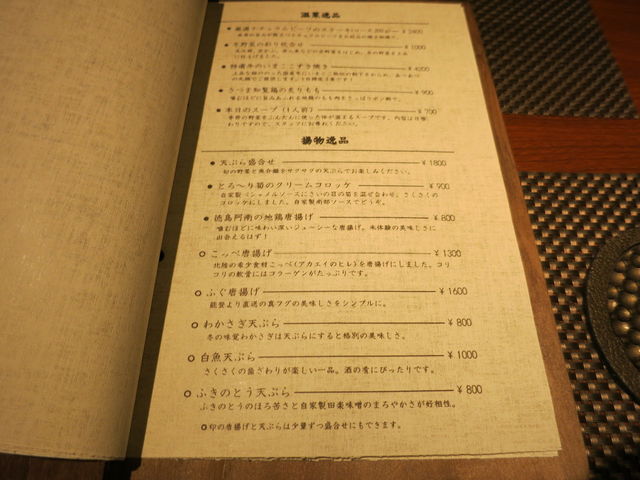 温菜逸品
● 厳選ナチュラルビーフのステーキ(ロース200g) ¥2400
● 冬野菜の彩り炊合せ ¥1000
● 特選牛のいまここすき焼き ¥4200
● さつま知覧鶏の炙りもも ¥900
噛むほどに旨みあふれる地鶏のもも肉をさっぱりポン酢で。
● 本日のスープ(1人前) ¥700
季節の野菜をふんだんに使った体が温まるスープです。内容は日替
わりですので、スタッフにお尋ねください。
揚物逸品
● 天ぷら盛合せ ¥1800
旬の野菜と魚介類をサクサクの天ぷらでお楽しみください。
● とろ〜り筍のクリームコロッケ ¥900
自家製ベシャメルソースにさいの目の筍を混ぜ合わせ、さくさくの
コロッケにしました。自家製南部ソースでどうぞ。
● 徳島阿南の地鶏唐揚げ ¥800
噛むほどに味わい深いジューシーな唐揚げ。未体験の美味しさに
出会えるはず!
○ こっぺ唐揚げ ¥1300
北陸の希少食材こっぺ(アカエイのヒレ)を唐揚げにしました。コリ
コリの軟骨にはコラーゲンがたっぷりです。
○ ふぐ唐揚げ ¥1600
能登より直送の真フグの美味しさをシンプルに。
○ わかさぎ天ぷら ¥800
冬の味覚わかさぎは天ぷらにすると格別の美味しさ。
○ 白魚天ぷら ¥1000
さくさくの歯ざわりが楽しい一品。酒の肴にぴったりです。
○ ふきのとう天ぷら ¥800
ふきのとうのほろ苦さと自家製田楽味噌のまろやかさが好相性。
○印の唐揚げと天ぷらは少量ずつ盛合せにもできます。